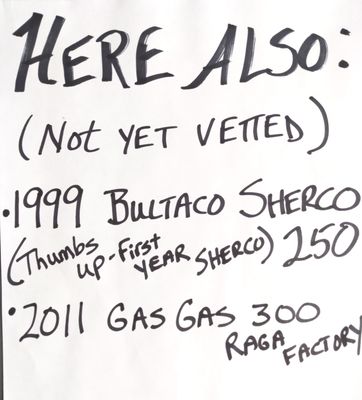 HERE ALSO:
(NOT YET VETTED)
• 1999 BULTACO SHERCO
(Thumbs UP - First YEAR SHERCO) 250
• 2011 GAS GAS 300
RAGA FACTORY